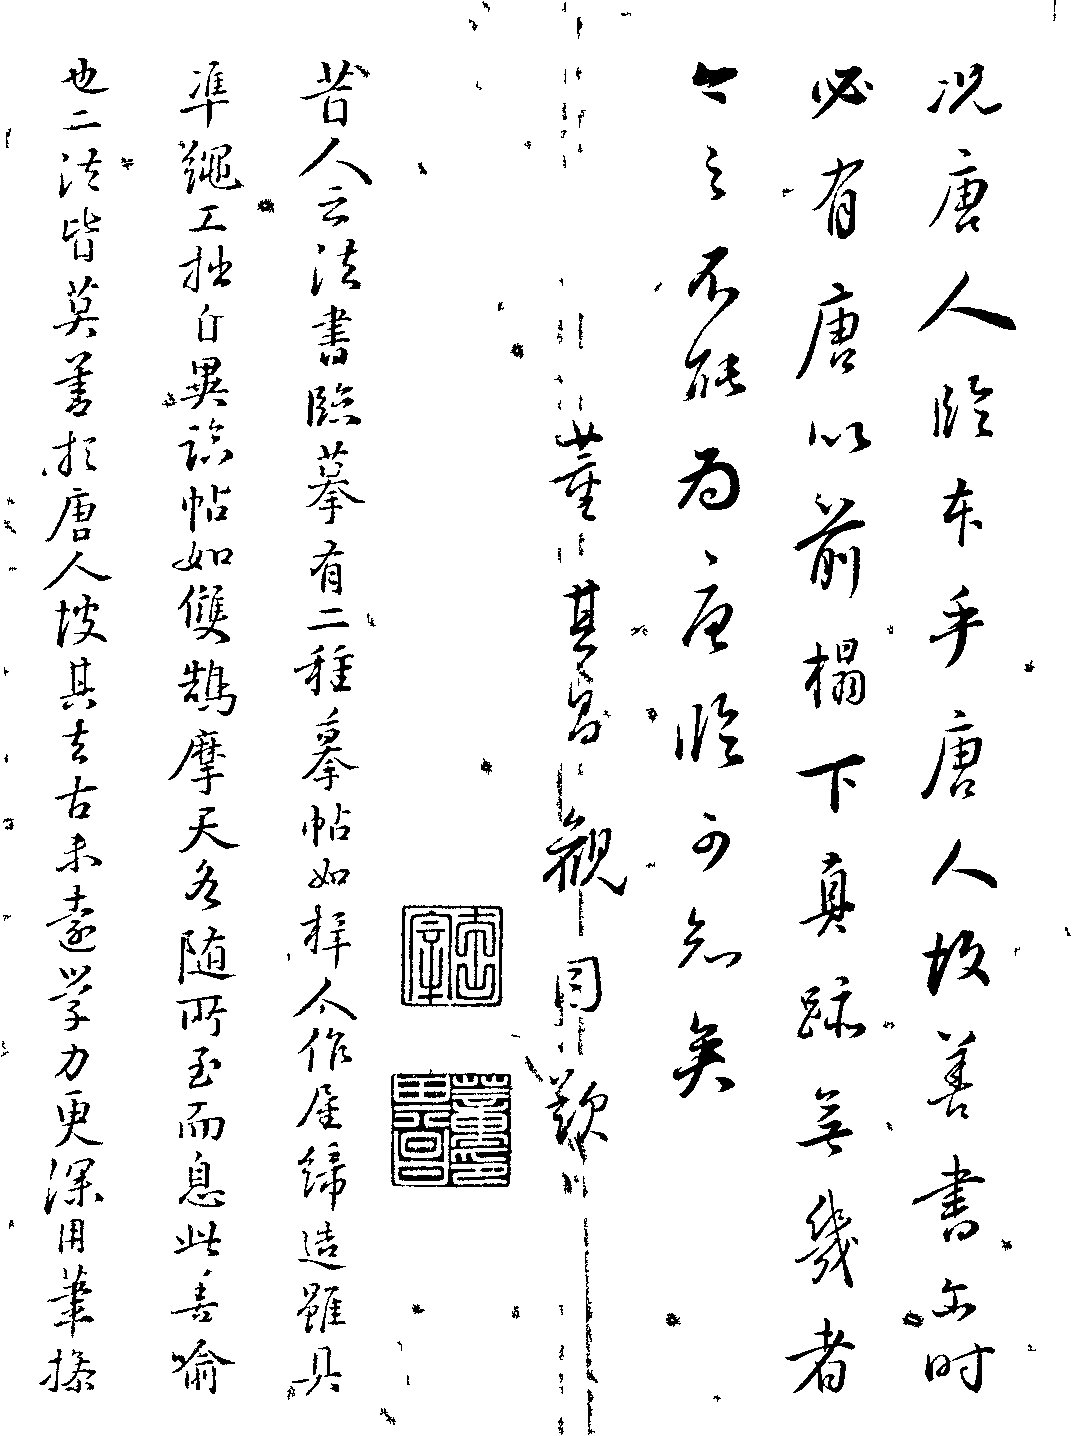 况唐人臨本乎唐人故善書尔时
必有唐以前榻下真跡無幾者
今之不能為唐臨可知矣
董其昌觀同歎
昔人云法書臨摹有二種摹帖如梓人作屋締造雖具
準繩工拙自異臨帖如雙鵠摩天各随所至而息此善喻
也二法皆莫善於唐人彼其去古未遠學力更深用筆操